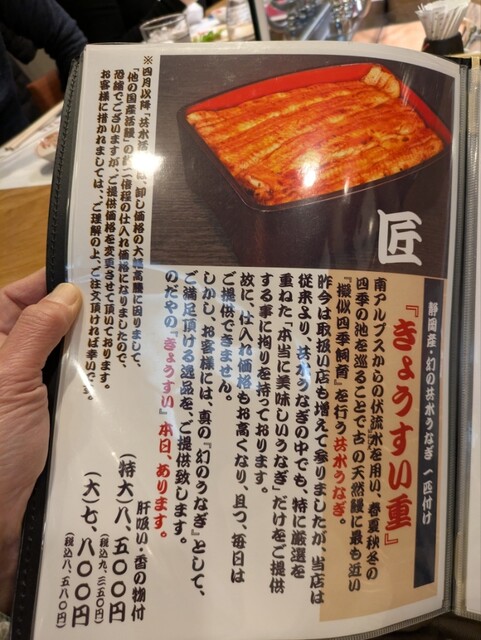 匠
静岡産・幻の共水うなぎ 一匹付け
『きょうすい重』
南アルプスからの伏流水を用い、春夏秋冬の
四季の池を巡ることで古の天然鰻に最も近い
『擬似四季飼育』を行う共水うなぎ。
昨今は取扱い店も増えて参りましたが、当店は
従来より、共水うなぎの中でも、特に厳選を
重ねた「本当に美味しいうなぎ」だけをご提供
する事に拘りを持っております。
故に、仕入れ価格もお高くなり、且つ、毎日は
ご提供できません。
しかし、お客様には、真の『幻のうなぎ』として、
ご満足頂ける逸品を、ご提供致します。
のだやの『きょうすい』本日、あります。
肝吸い・香の物付
(特大)八、五〇〇円
(税込九、三五〇円)
(大)七、八〇〇円
(税込八、五八〇円)
※四月以降「共水活、卸し価格の大幅高騰に因りまして、
「他の国産活鰻」の約二倍程の仕入れ価格になりましたので、
恐縮でございますが、ご提供価格を変更させて頂いております。
お客様に措かれましては、ご理解の上、ご注文頂ければ幸いです。